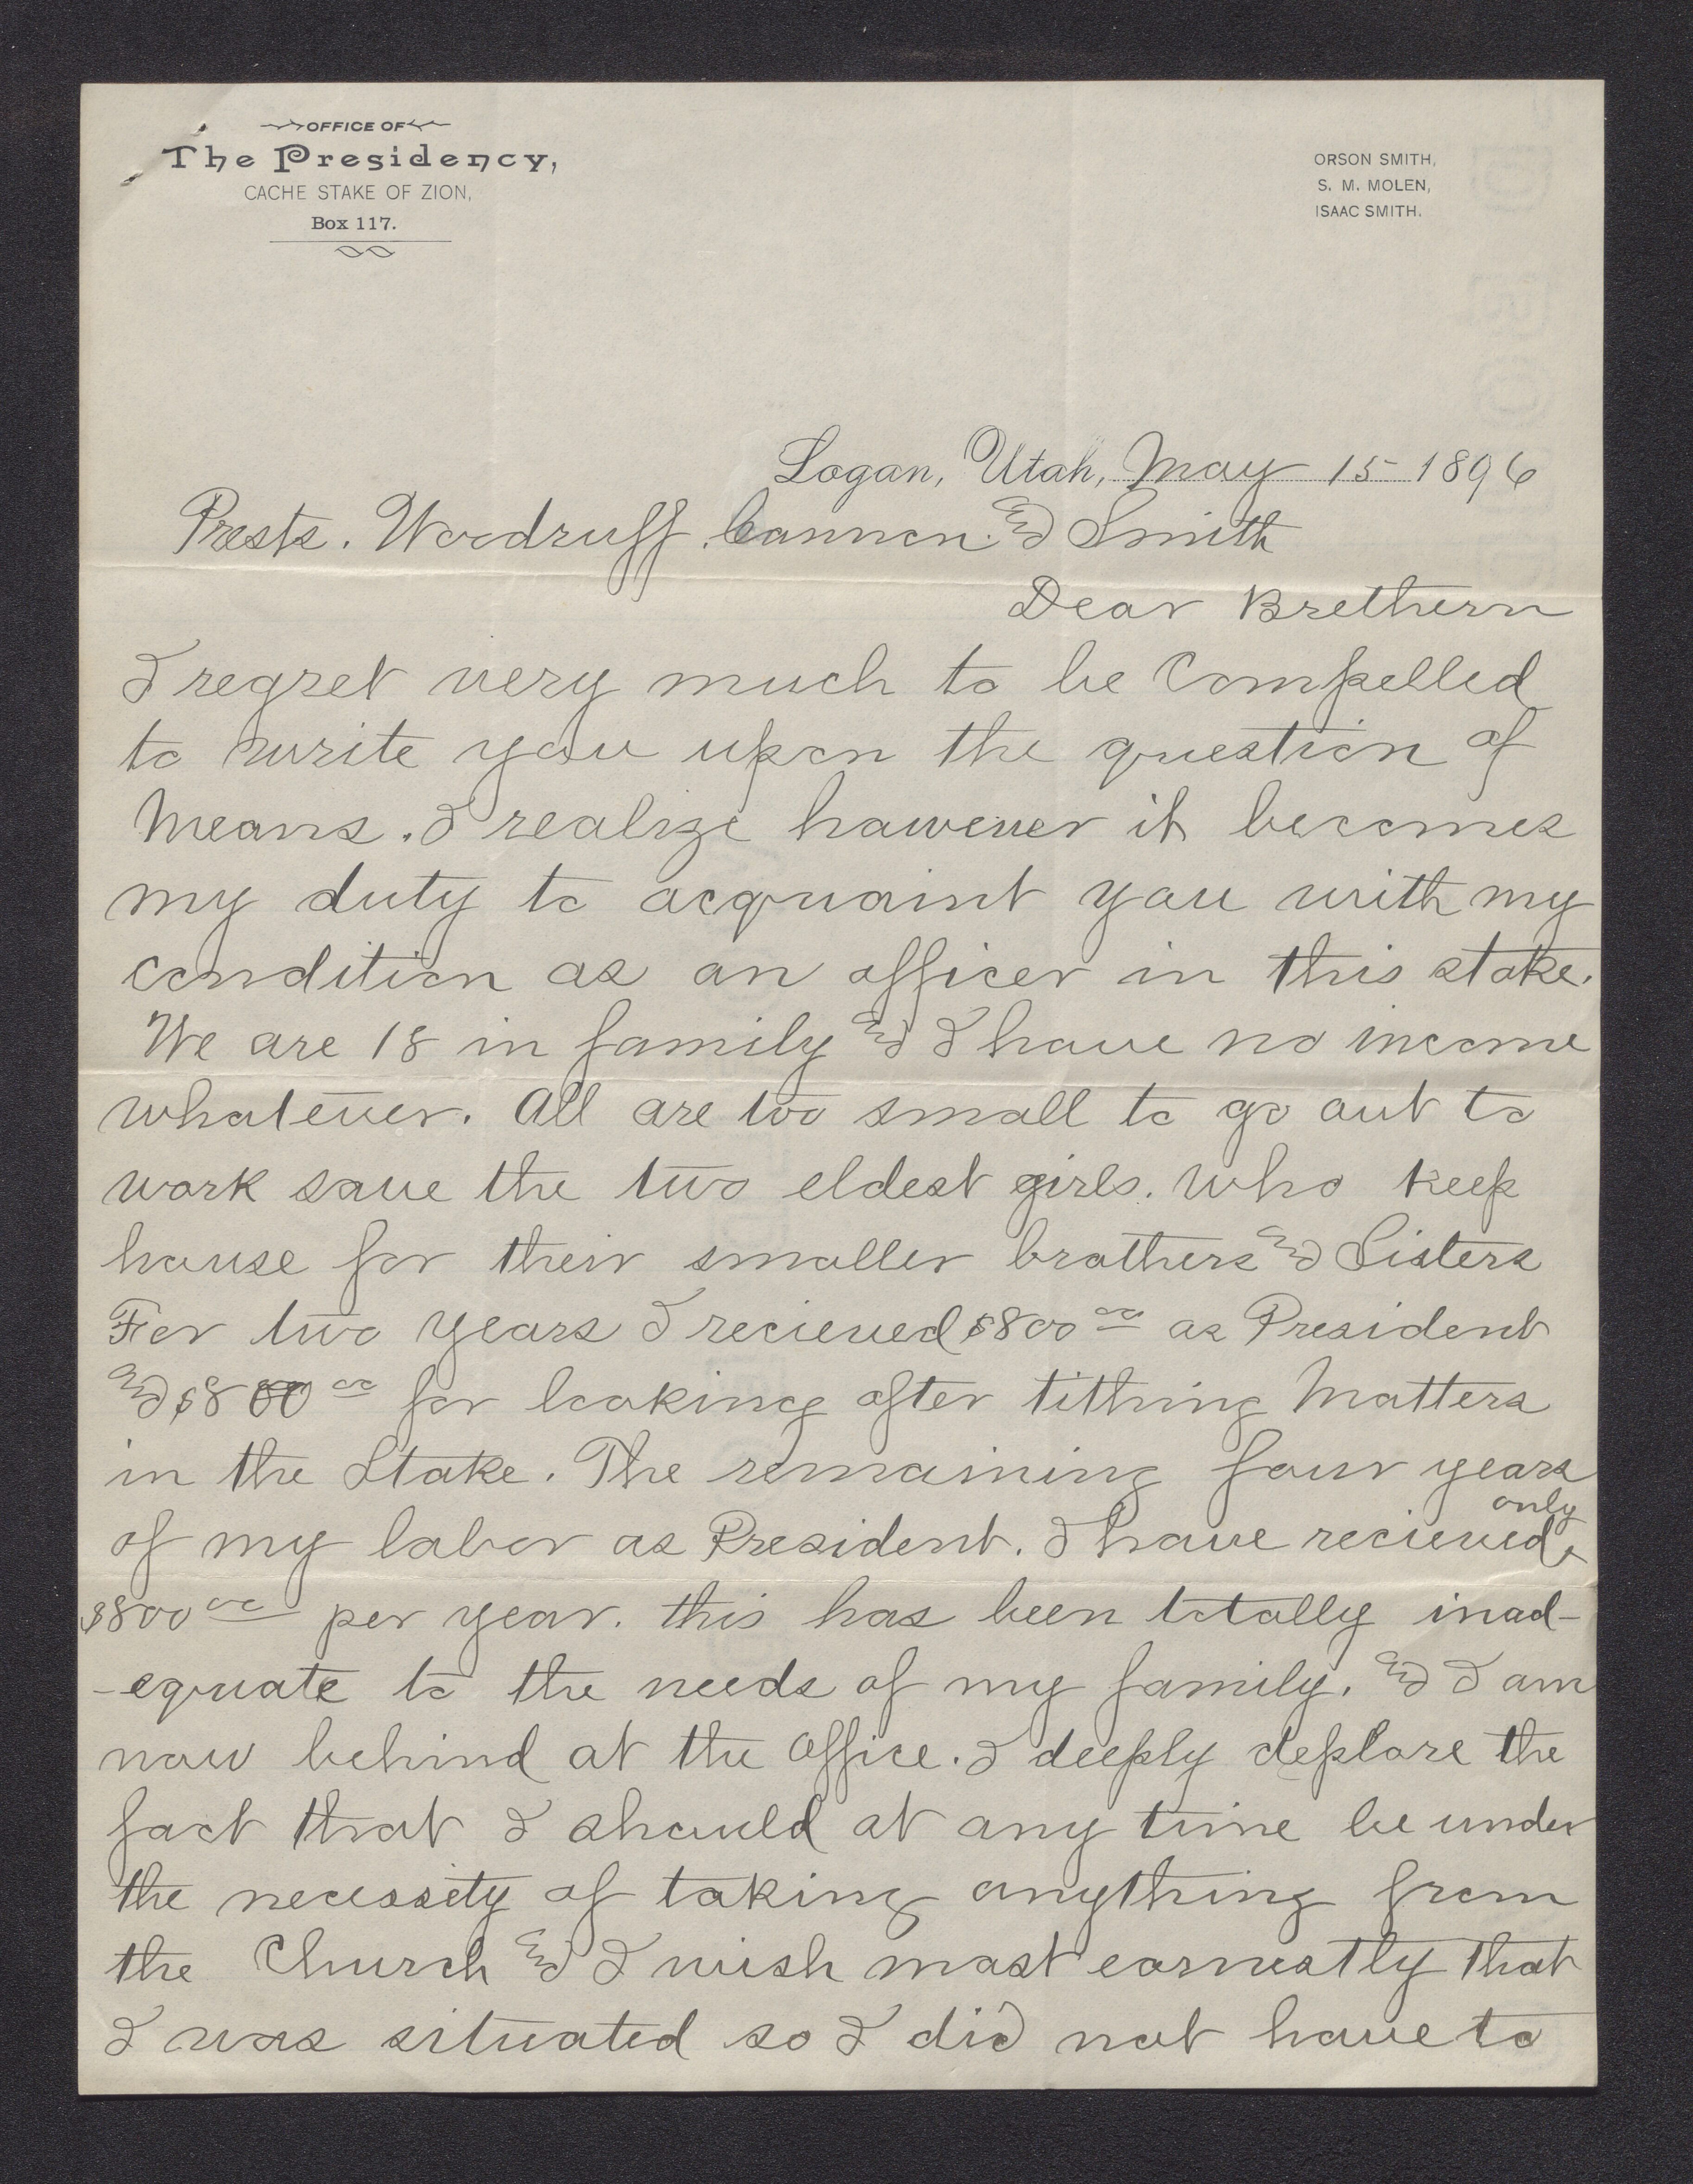 OFFICE OF
The Presidency,
CACHE STAKE OF ZION,
Box 117.
ORSON SMITH,
S. M. MOLEN,
ISAAC SMITH.
Logan, Utah, May 15 1896
Prests. Woodruff. Cannon. and Smith
Dear Brethern
I regret very much to be Compelled
to write you upon the question of
Means. I realize however it becomes
my duty to acquaint you with my
condition as an officer in this stake.
We are 18 in family and I have no income
whatever. All are too small to go out to
work save the two eldest girls. who keep
house for their smaller brothers and Sisters
For two years I recieved $800 00 as President
and $800 00 for looking after tithing Matters
in the Stake. The remaining four years
of my labor as President. I have recieved only
$800 00 per year. this has been totally inad-
-equate to the needs of my family. and I am
now behind at the Office. I deeply deplore the
fact that I should at any time be under
the necessity of taking anything from
the Church and I wish most earnestly that
I was situated so I did not have to